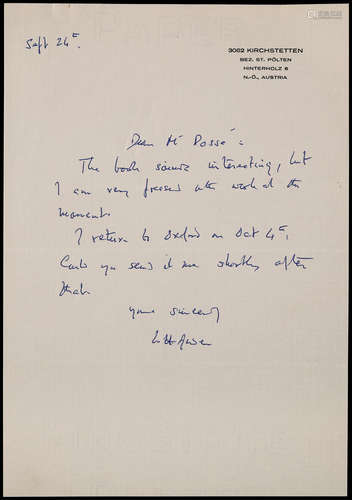 Sept 24th.
3062 KIRCHSTETTEN
BEZ. ST. PÖLTEN
HINTERHOLZ 6
N.-Ö., AUSTRIA
Dear Mr Dossé:
The book sounds interesting, but
I am very pressed with work at the
moment.
I return to Oxford on Oct 4th.
Could you send it me shortly after
that.
yours sincerely
WH Auden